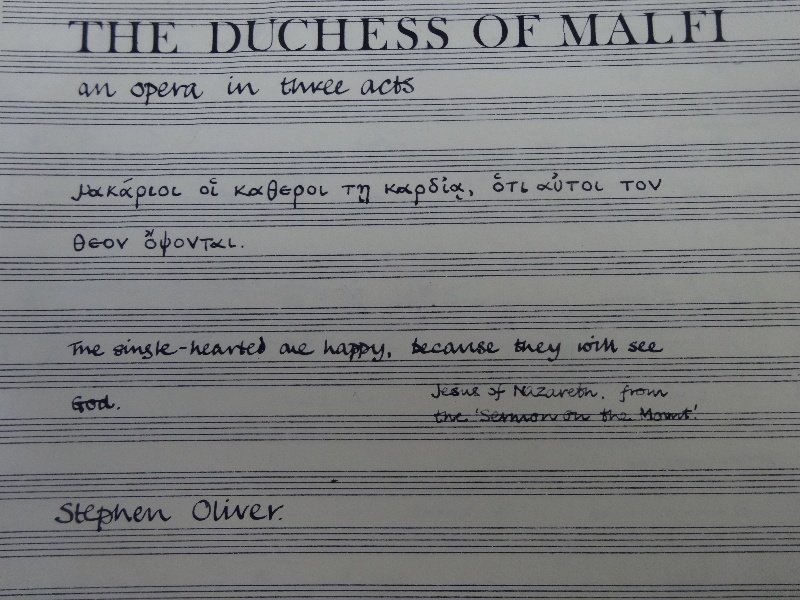 THE DUCHESS OF MALFI
an opera in three acts
μακάριοι οἵ καθεροι τῃ καρδίᾳ, ὅτι αὐτοι τον
θεον ὄψονται.
The single-hearted are happy, because they will see
God.
Jesus of Nazareth, from
the 'Sermon on the Mount'.
Stephen Oliver.